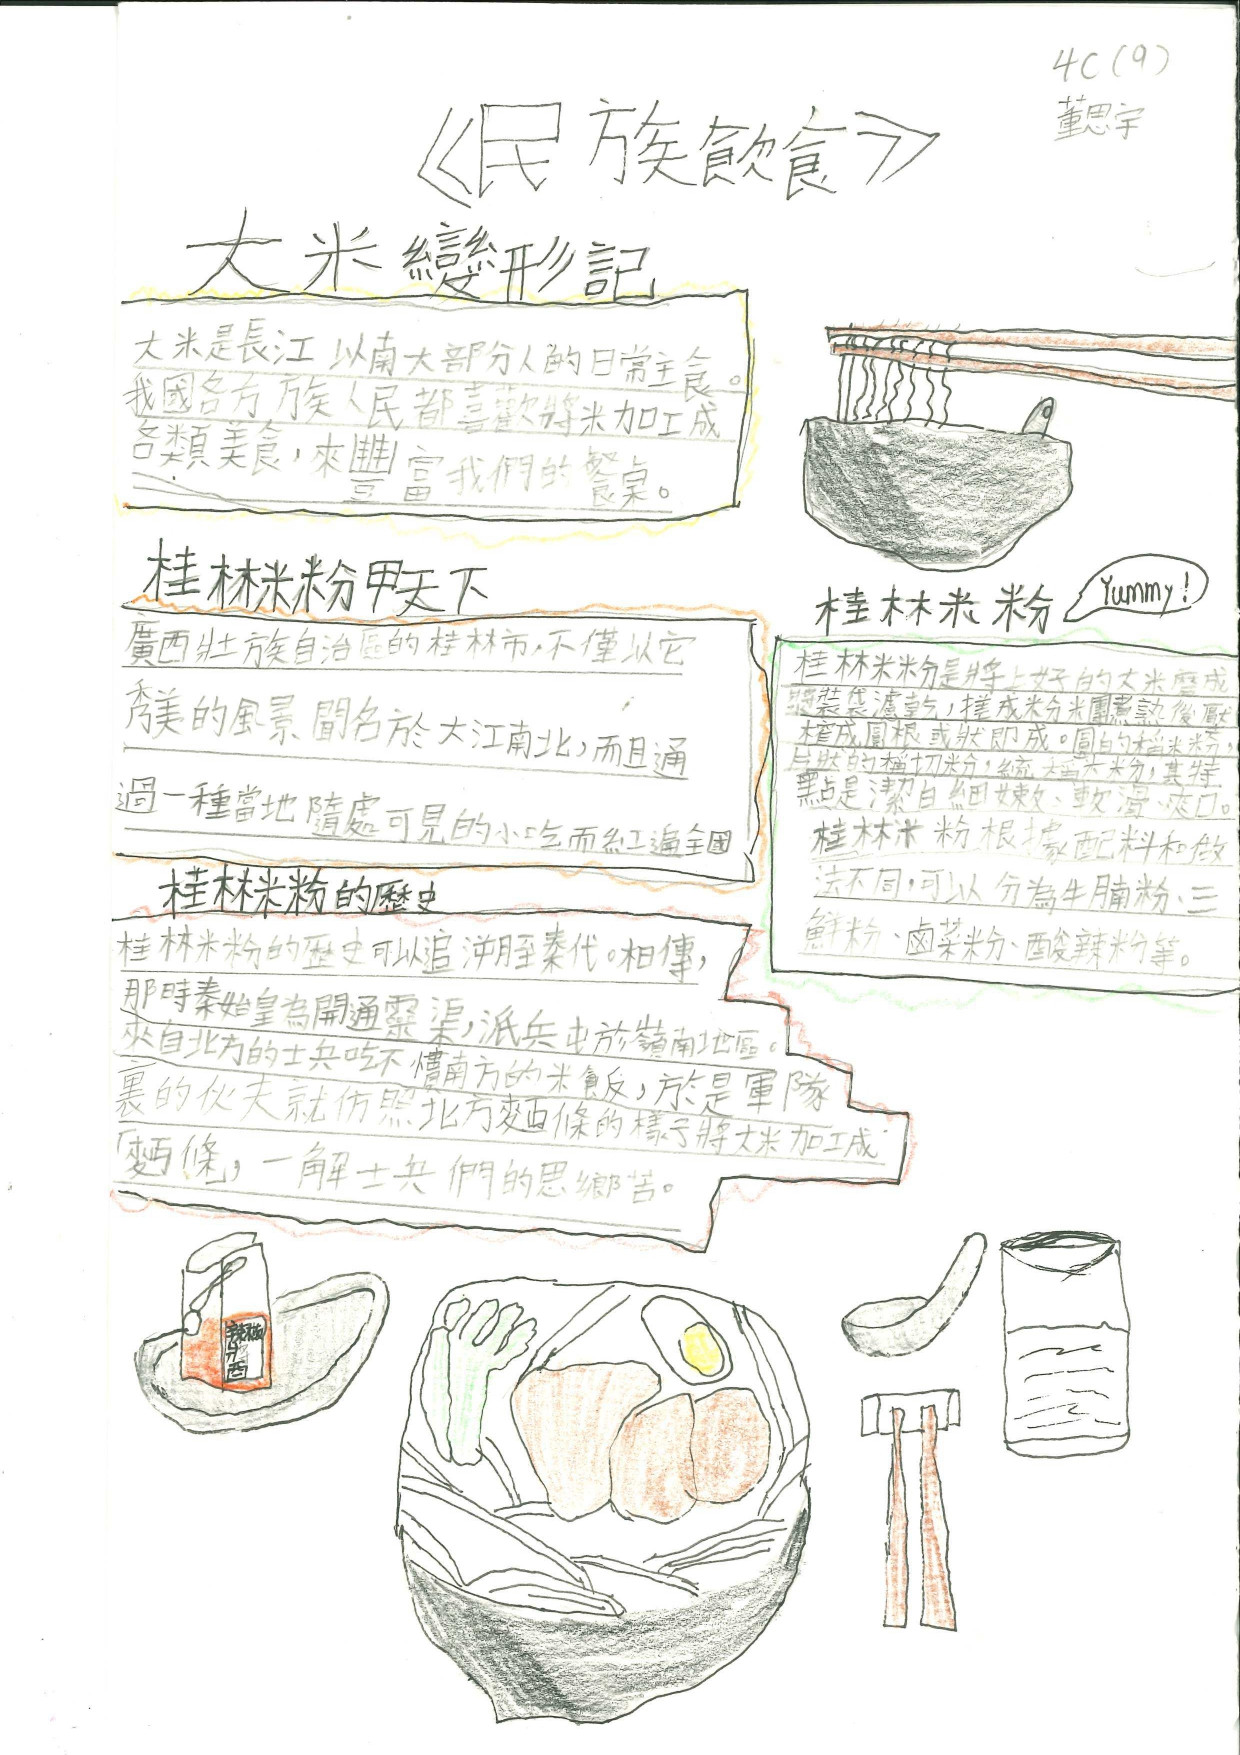 4C(9)
董思宇
《民族飲食》
大米變形記
大米是長江以南大部分人的日常主食。
我國各方族人民都喜歡將米加工成
各類美食，來豐富我們的餐桌。
桂林米粉甲天下
廣西壯族自治區的桂林市，不僅以它
秀美的風景聞名於大江南北，而且通
過一種當地隨處可見的小吃而紅遍全國
桂林米粉的歷史
桂林米粉的歷史可以追溯至秦代。相傳，
那時秦始皇為開通靈渠，派兵屯於嶺南地區。
來自北方的士兵吃不慣南方的米飯，於是軍隊
裏的伙夫就仿照北方麵條的樣子將大米加工成
「麵條，一解士兵們的思鄉苦。
桂林米粉
Yummy!
桂林米粉是將上好的大米磨成
漿裝袋濾乾，搓成粉米團煮熟後壓
榨成圓根或狀即成。圓的稱米粉，
片狀的稱切粉，統稱六粉，其特
點是潔白細嫩、軟滑、爽口。
桂林米粉根據配料和做
法不同，可以分為牛腩粉、三
鮮粉、鹵菜粉、酸辣粉等。
辣椒